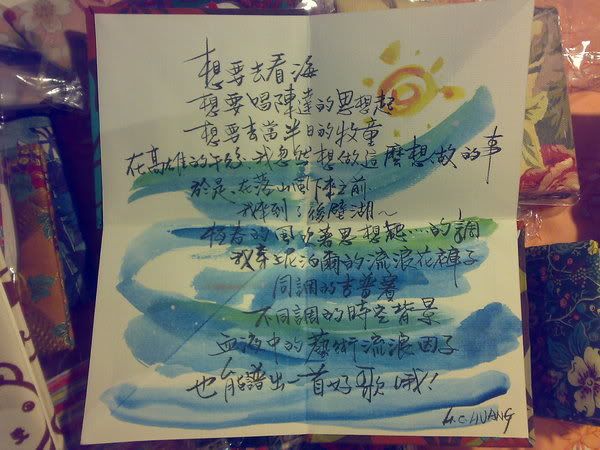 想要去看海
想要唱陳達的思想起
想要去當半日的牧童
在高雄的午後,我忽然想做這麼想做的事
於是,在落山風下來之前
我來到了後壁湖~
恆春的風吹著思想起…的調
我穿上尼泊爾的流浪花褲子
同調的吉普著
不同調的時空背景
血液中的藝術流浪因子
也能譜出一首好歌哦!
H.C.HUANG